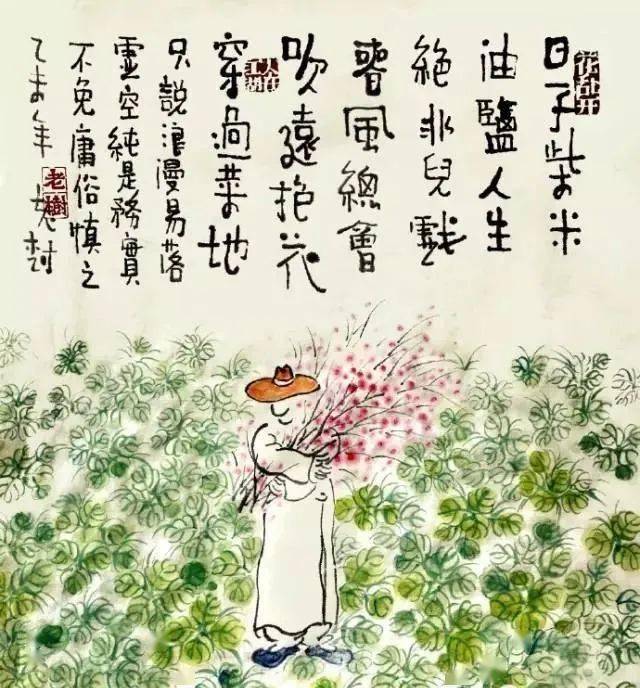 花乱开
日子柴米
油鹽人生
絕非兒戲
春風總會
吹遠抱花
人在江湖
穿過菜地
只說浪漫易落
虛空純是務實
不免庸俗慎之
乙未年
老樹